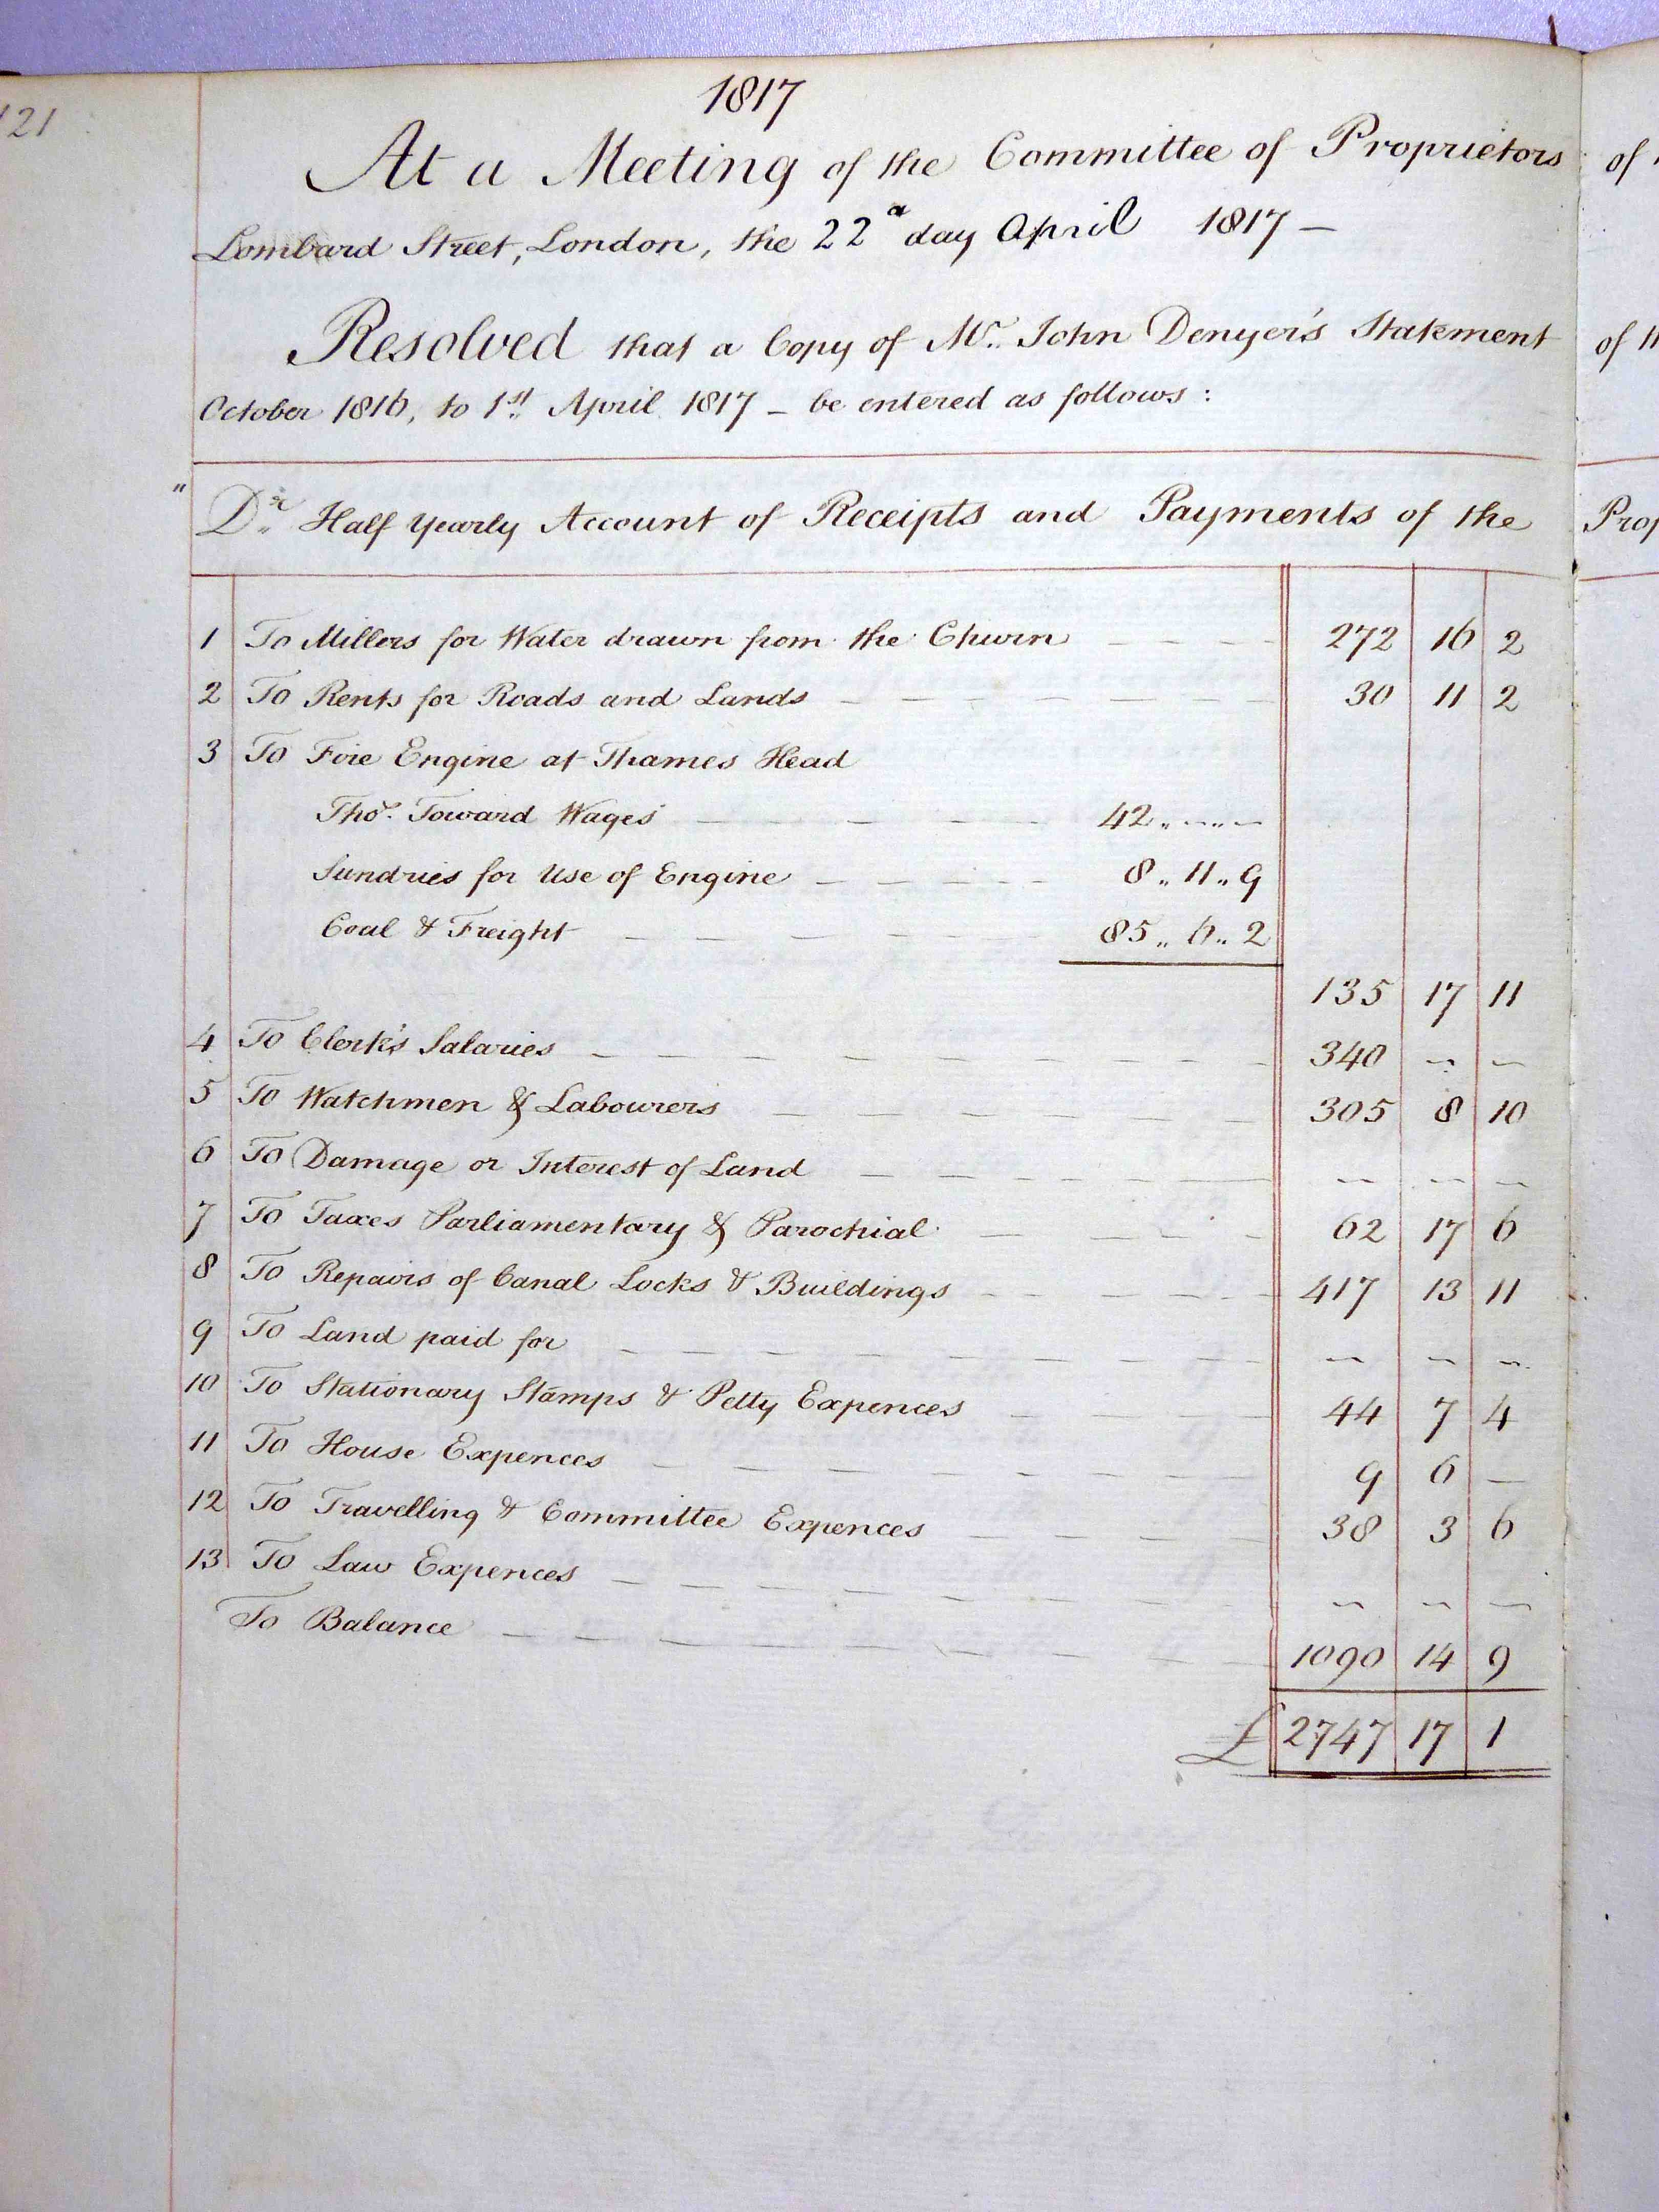 1817
121
At a Meeting of the Committee of Proprietors of
Lombard Street, London, the 22d day April 1817 –
Resolved that a Copy of Mr. John Denyer's Statement of
October 1816, to 1st April 1817 – be entered as follows :
" Dr. Half Yearly Account of Receipts and Payments of the
1 To Millers for Water drawn from the Churn — — — 272 16 2
2 To Rents for Roads and Lands — — — 30 11 2
3 To Fire Engine at Thames Head
Thos. Toward Wages — — — 42 „ – „ –
Sundries for Use of Engine — — — 8 „ 11 „ 9
Coal & Freight — — — 85 „ 6 „ 2
135 17 11
4 To Clerk's Salaries — — — 340 – –
5 To Watchmen & Labourers — — — 305 8 10
6 To Damage or Interest of Land — — — – – –
7 To Taxes Parliamentary & Parochial — — — 62 17 6
8 To Repairs of Canal Locks & Buildings — — — 417 13 11
9 To Land paid for — — — – – –
10 To Stationary Stamps & Petty Expences — — — 44 7 4
11 To House Expences — — — 9 6 –
12 To Travelling & Committee Expences — — — 38 3 6
13 To Law Expences — — — – – –
To Balance — — — 1090 14 9
£ 2747 17 1